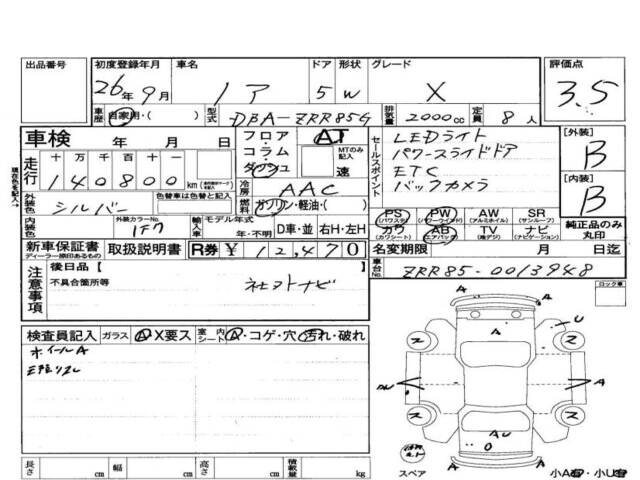 出品番号 初度登録年月 車名 ドア 形状 グレード 評価点
26年 9月 ノア 5 W X 3.5
車歴 自家用・( ) 型式 DBA-ZRR85G 排気量 2000cc 定員 8人
車検 年 月 日 フロア AT セールスポイント LEDライト [外装]
走行 十 万 千 百 十 一 コラム MTのみ記入 パワースライドドア B
140800 km ダッシュ 速 ETC
外装色 シルバー 色替車は色替と記入 冷房 AAC バックカメラ [内装]
燃料 ガソリン・軽油・( ) B
内装色 外装カラーNo. 1F7 輸入車 モデル年式 年・不明 D車・並 右H・左H
PS (パワステ) PW (パワーウィンド) AW (アルミホイル) SR (サンルーフ)
カワ (カワシート) AB (エアバッグ) TV (地デジ) ナビ (ナビゲーション) 純正品のみ丸印
新車保証書 ディーラー捺印あるもの 取扱説明書 R券 ¥12,470 名変期限 月 日迄
車台No. ZRR85-0013948
注意事項 後日品【 】
不具合箇所等
ロック車
検査員記入 ガラス A・X要ス 室内シート A・コゲ・穴・汚れ・破れ
ホイールA
A A U A A A A U O A A
長さ cm 幅 cm 高さ cm 積載量 kg
スペア 小A・小U